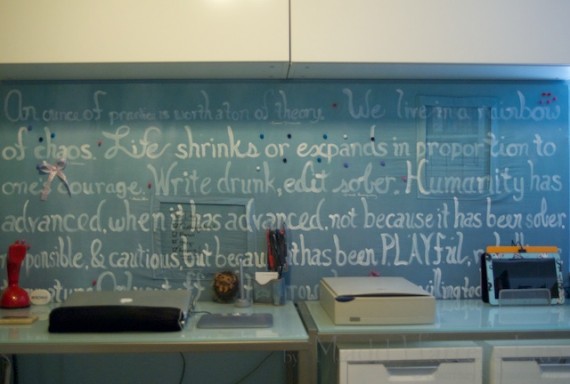 An ounce of practice is worth a ton of theory. We live in a rainbow
of chaos. Life shrinks or expands in proportion to
one's courage. Write drunk, edit sober. Humanity has
advanced, when it has advanced, not because it has been sober,
responsible, & cautious, but because it has been PLAYful,